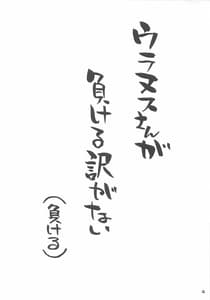 ウラヌスさんが
負ける訳がない
(負ける)